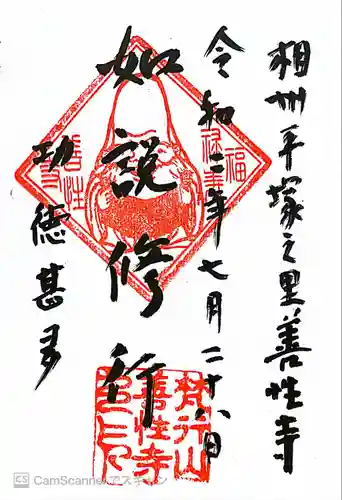 相州平塚之里善性寺
令和二年七月二十八日
如説修行
功徳甚多
福禄寿
善性寺
梵行山
善性寺
CamScannerでスキャン